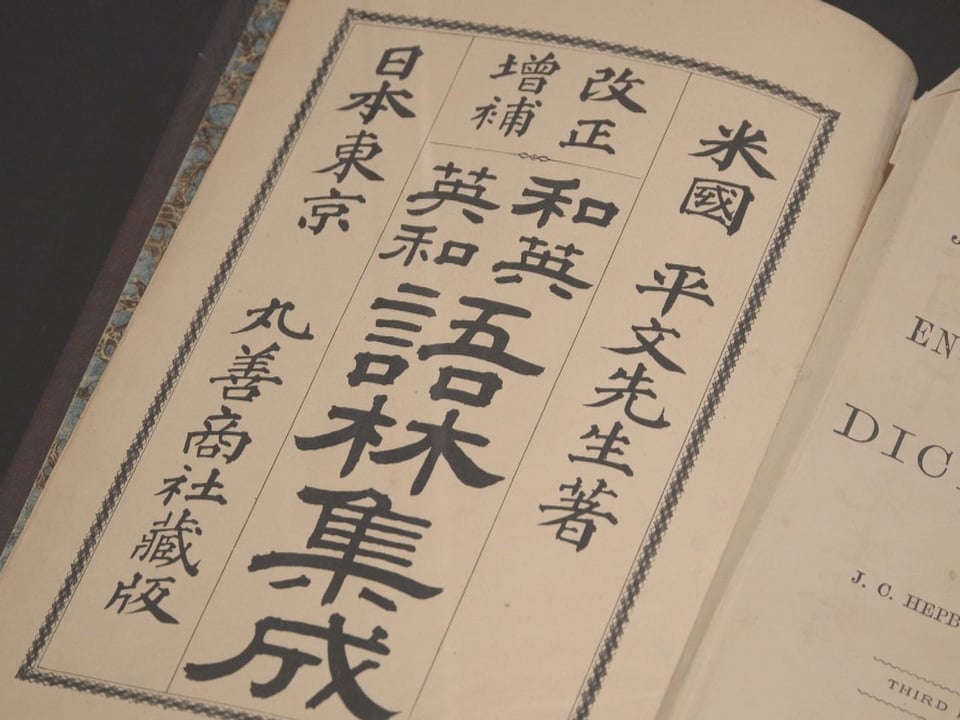 米國 平文先生著
改正
增補
和英
英和
語林集成
日本東京 丸善商社藏版
EN
DIC
J. C. HEPB
THIRD